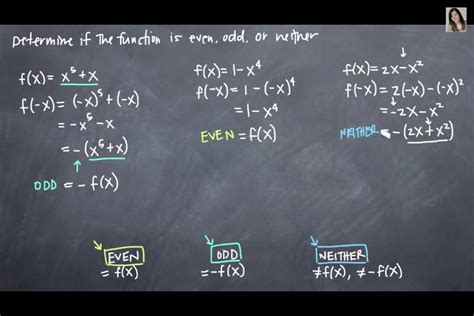 Determine if the function is even, odd, or neither
f(x) = x⁵+x
f(-x) = (-x)⁵+(-x)
= -x⁵-x
= -(x⁵+x)
ODD = -f(x)
f(x) = 1-x⁴
f(-x) = 1-(-x)⁴
= 1-x⁴
EVEN = f(x)
f(x) = 2x-x²
f(-x) = 2(-x)-(-x)²
= -2x-x²
NEITHER = -(2x+x²)
EVEN
= f(x)
ODD
= -f(x)
NEITHER
≠f(x), ≠-f(x)